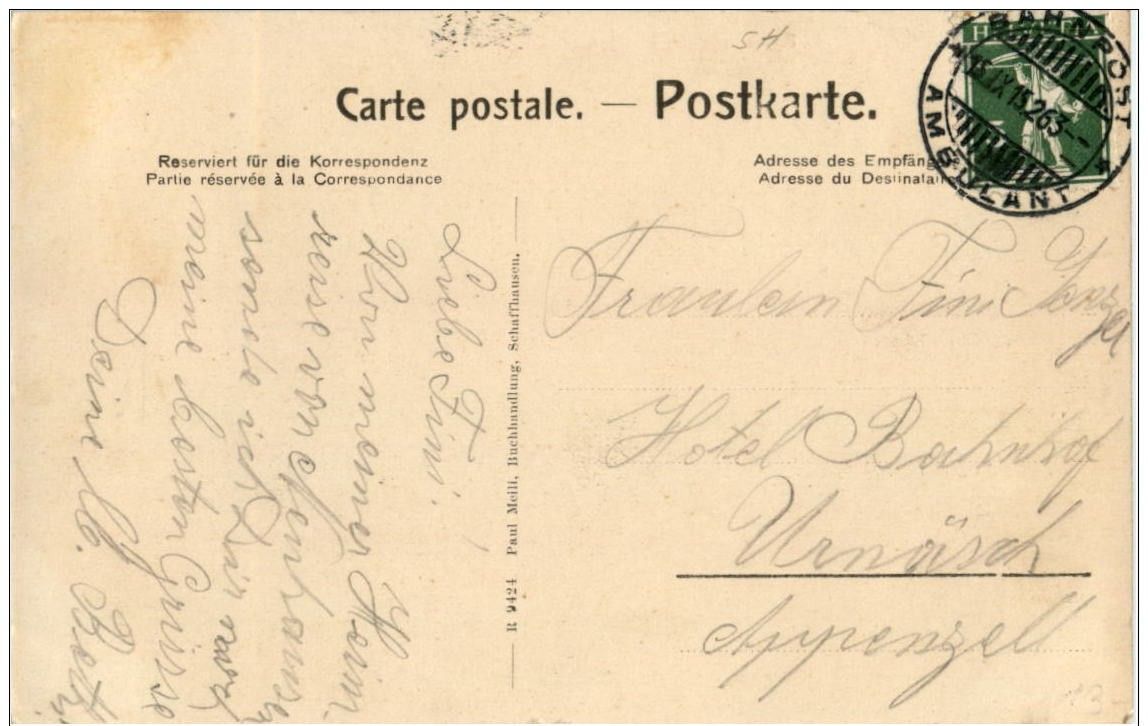 SH
Carte postale. — Postkarte.
Reserviert für die Korrespondenz
Partie réservée à la Correspondance
Adresse des Empfäng
Adresse du Destinatai
BAHNPOST
AMBULANT
HELVETIA
R 9424 Paul Meili, Buchhandlung, Schaffhausen.
Liebe Fini!
Von meiner Heim
reise von
sende ich Dir noch
meine besten Grüsse
Deine lb.
Fräulein Fini
Hotel Bahnhof
Urnäsch
Appenzell